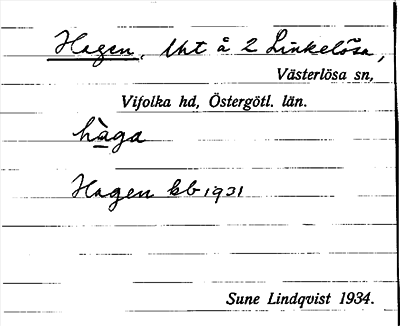 Hagen, lht å 2 Linkelösa,
Västerlösa sn,
Vifolka hd, Östergötl. län.
hàga
Hagen kb 1931
Sune Lindqvist 1934.